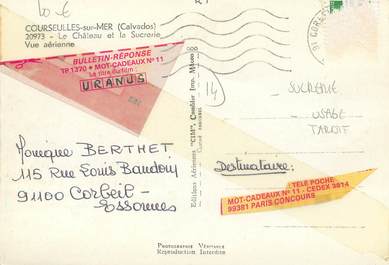 10 €
COURSEULLES-sur-MER (Calvados)
20973 - Le Château et la Sucrerie
Vue aérienne
BULLETIN-RÉPONSE
TP 1370 • MOT-CADEAUX N° 11
Le titre du film :
URANUS
14
SUCRERIE
USAGE
TARDIF
Monique BERTHET
115 Rue Louis Baudoin
91100 Corbeil-
Essonnes
Destinataire:
TÉLÉ POCHE
MOT-CADEAUX N° 11 - CEDEX 3814
99381 PARIS CONCOURS
Editions Aériennes "CIM", Combier Imp. Mâcon
PHOTOGRAPHIE VÉRITABLE
Reproduction Interdite